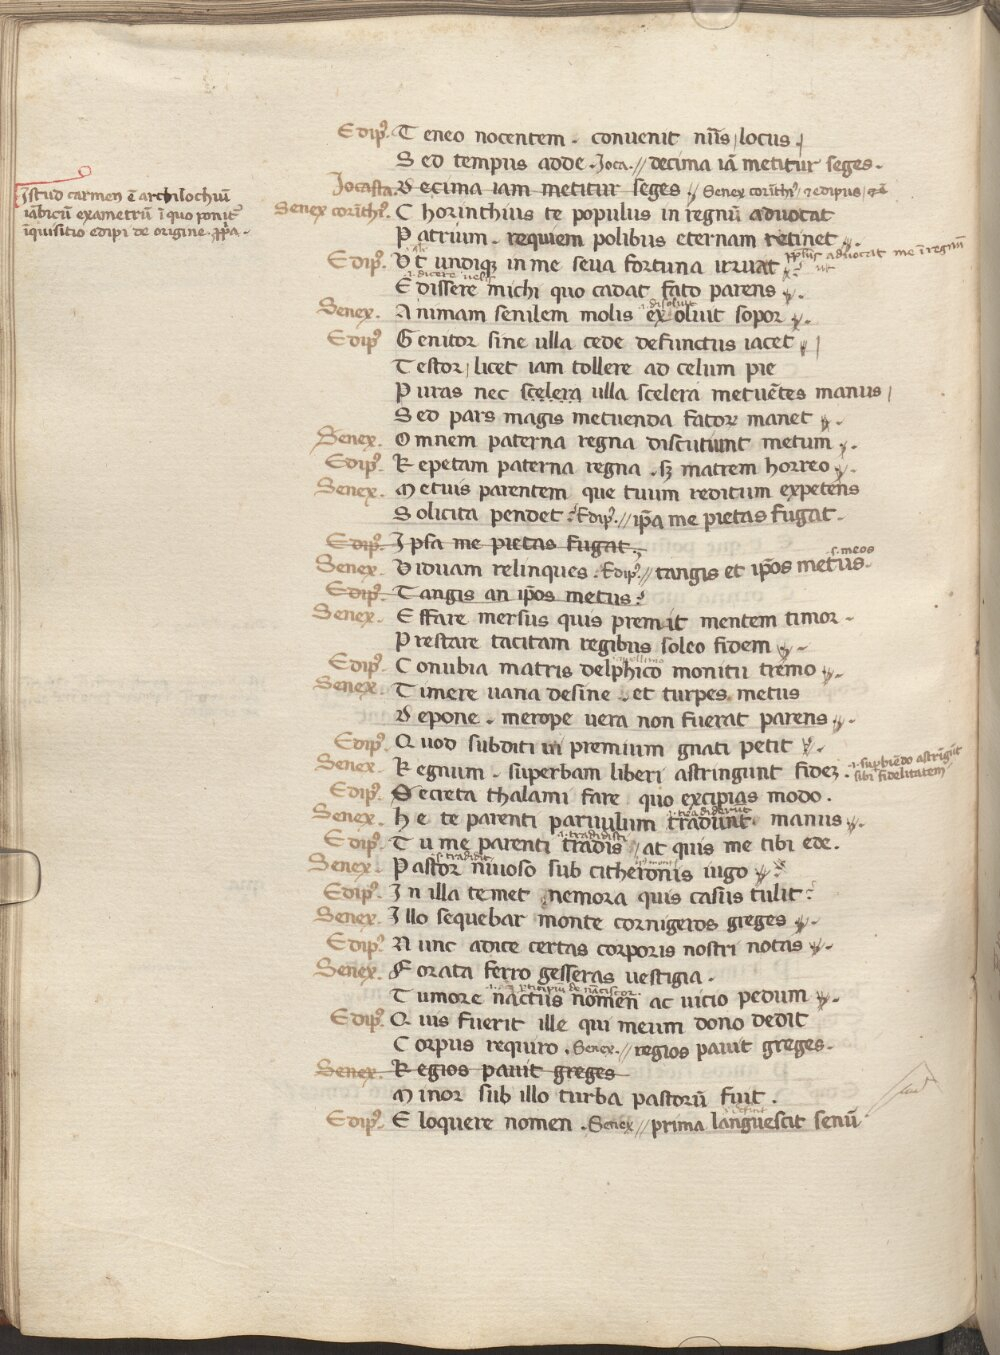 Edip9. Teneo nocentem. convenit nũs locus
Sed tempus adde. Joca. // decima iã metitur seges.
Jocasta. Decima iam metitur seges Senex corĩth9 & edipus
Istud carmen ẽ archilochiũ
iãbicũ exametrũ ĩ quo ponit᷑
ĩquisitio edipi de origine ꝓpa.
Senex corĩth9. Chorinthius te populus in regnũ advocat
Patrium. requiem polibus eternam retinet
advocat me ĩ regnũ
Edip9. Ut undiqꝫ in me seva fortuna irruat
i. dicere velis
Edissere michi quo cadat fato parens
i. disoluit
Senex. Animam senilem molis exoluit sopor
Edip9 Genitor sine ulla cede defunctus iacet
Testor licet iam tollere ad celum pie
Puras nec scelera ulla scelera metuẽtes manus
Sed pars magis metuenda fatoꝝ manet
Senex. Omnem paterna regna discutiunt metum
Edip9. Repetam paterna regna. sꝫ matrem horreo
Senex. Metuis parentem que tuum reditum expetens
Solicita pendet. Edip9. // ip̃a me pietas fugat.
Edip9. Ipsa me pietas fugat.
s. meos
Senex. Viduam relinques. Edip9. // tangis et ip̃os metus.
Edip9. Tangis an ip̃os metus.
Senex. Effare mersus quis premit mentem timor.
Prestare tacitam regibus soleo fidem
Edip9. Conubia matris delphico monitu tremo
Senex. Timere vana desine. et turpes metus
Depone. merope vera non fuerat parens
Edip9. Quod subditi in premium gnati petit
Senex. Regnum. superbam liberi astringunt fideꝫ.
astrĩgũt
sibi fidelitatem
Edip9. Secreta thalami fare quo excipias modo.
i. tradiderũt
Senex. He te parenti parvulum tradunt manus
i. tradidisti
Edip9. Tu me parenti tradis at quis me tibi ede.
s. tradidit
Senex. Pastor nivoso sub citheronis iugo
Edip9. In illa temet nemora quis casus tulit
Senex. Illo sequebar monte cornigeros greges
Edip9. Nunc adice certas corporis nostri notas
Senex. Forata ferro gesseras vestigia.
Tumore nactus nomen ac vicio pedum
Edip9. Quis fuerit ille qui meum dono dedit
Corpus requiro. Senex. // regios pavit greges.
Senex. Regios pavit greges
Minor sub illo turba pastorũ fuit.
Edip9. Eloquere nomen. Senex // prima languescit senũ